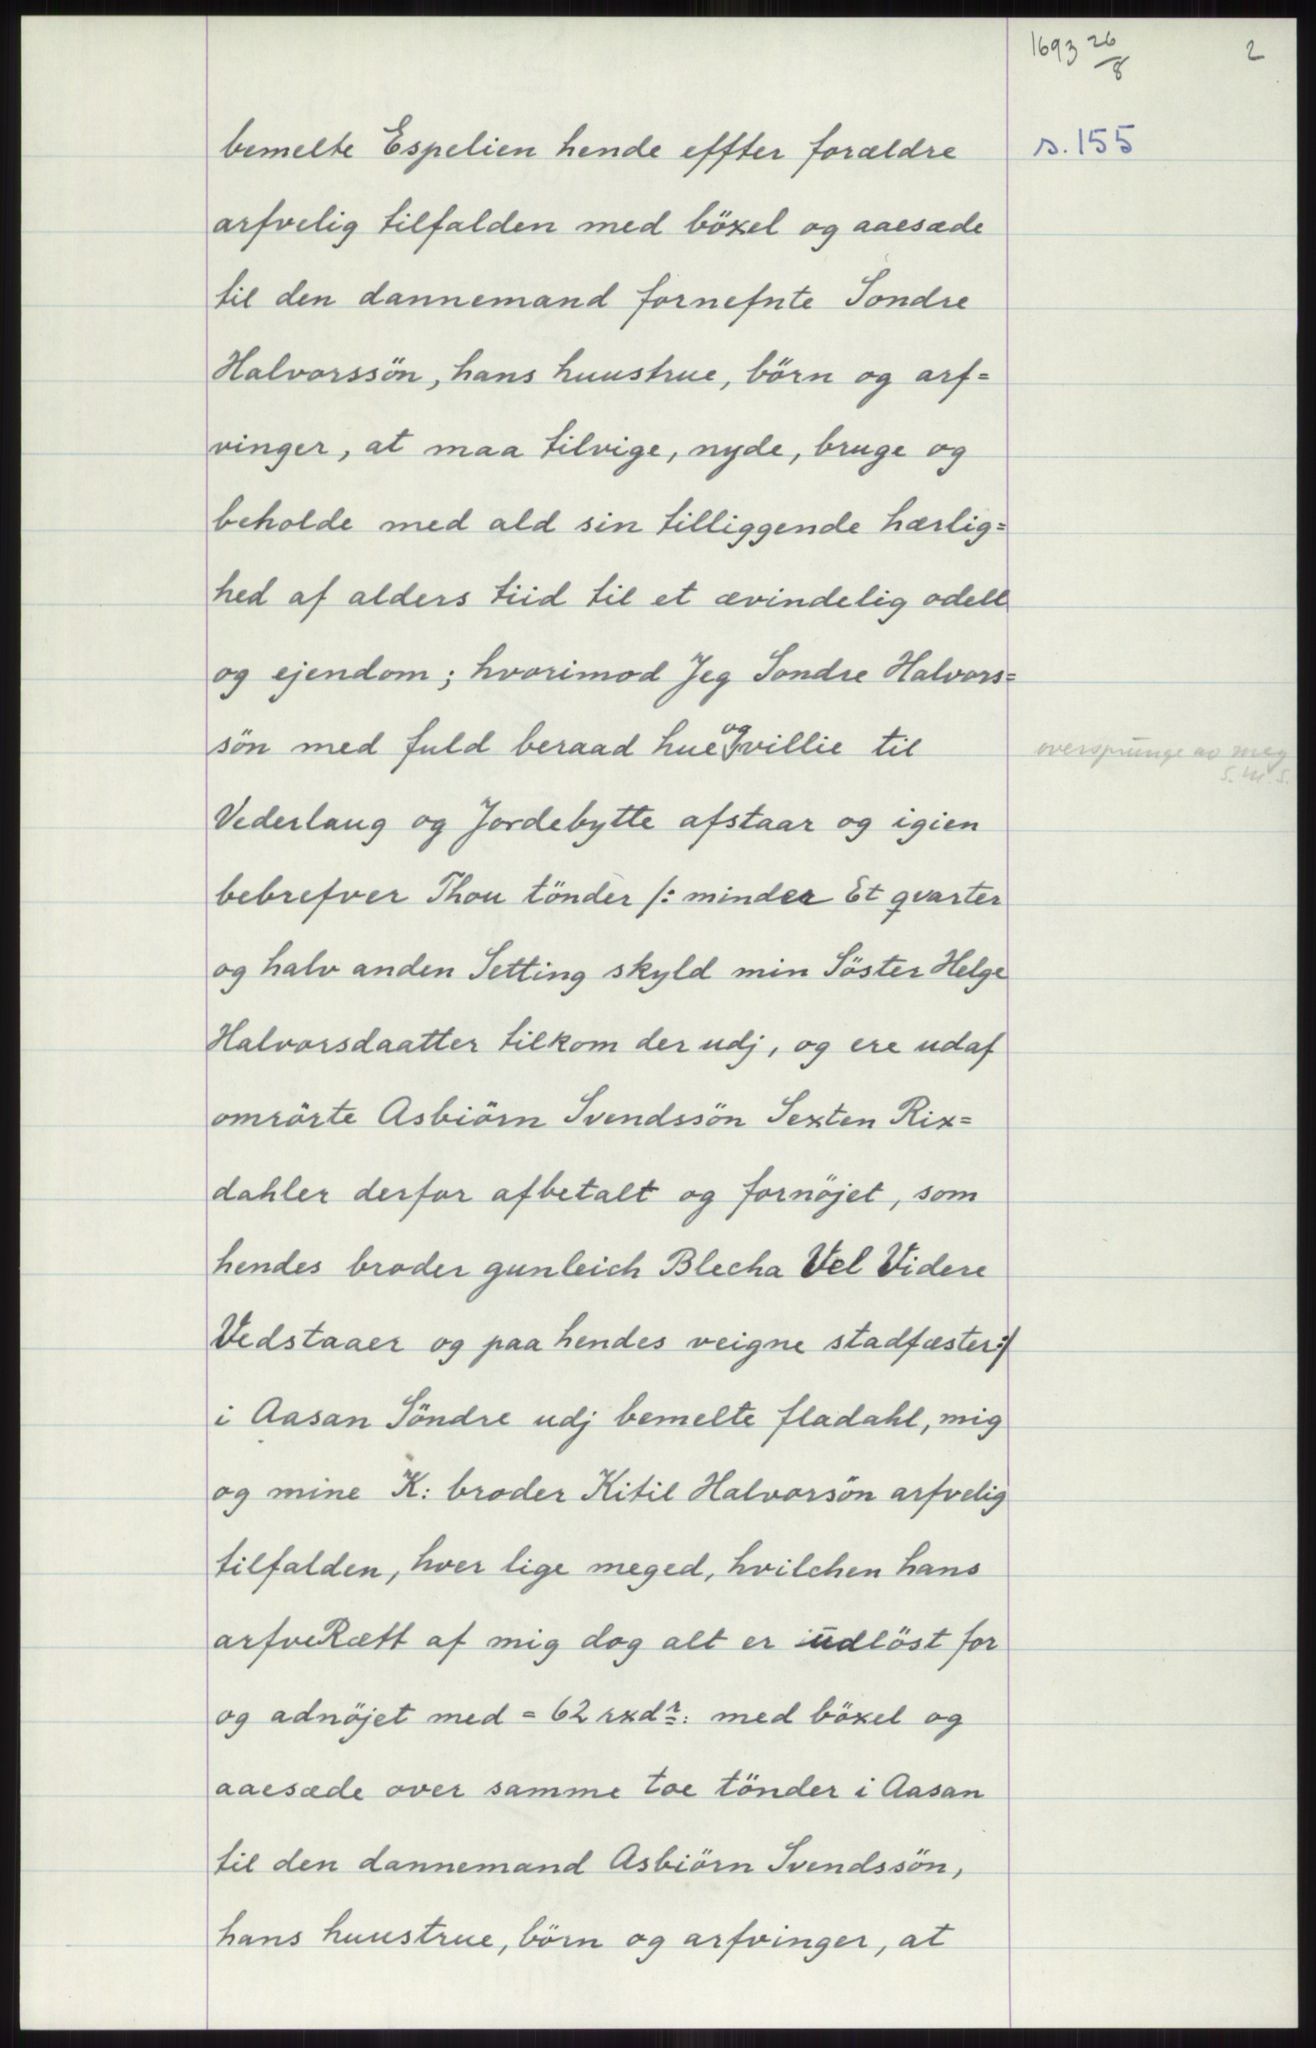 1693 26/8
2
bemelte Espelien hende effter forældre
s. 155
arfvelig tilfalden med böxel og aaesæde
til den dannemand fornefnte Sondre
Halvorssön, hans huustrue, börn og arf=
vinger, at maa tilvige, nyde, bruge og
beholde med ald sin tilliggende hærlig=
hed af alders tiid til et ævindelig odell
og ejendom; hvorimod Jeg Sondre Halvors=
sön med fuld beraad hue og villie til
oversprunge av meg
S.M.S.
Vederlaug og Jordebytte afstaar og igien
bebrefver Thou tönder /: minder Et qvarter
og halv anden Setting skyld min Söster Helge
Halvorsdaatter tilkom der udj, og ere udaf
omrörte Asbiörn Svendssön Sexten Rix=
dahler derfor afbetalt og fornöjet, som
hendes broder gunleich Blecha Vel Videre
Vedstaaer og paa hendes veigne stadfæster:/
i Aasan Söndre udj bemelte fladahl, mig
og mine K: broder Kitil Halvorsön arfvelig
tilfalden, hver lige meged, hvilchen hans
arfveRætt af mig dog alt er udlöst for
og adnöjet med = 62 rxdr: med böxel og
aaesæde over samme toe tönder i Aasan
til den dannemand Asbiörn Svendssön,
hans huustrue, börn og arfvinger, at